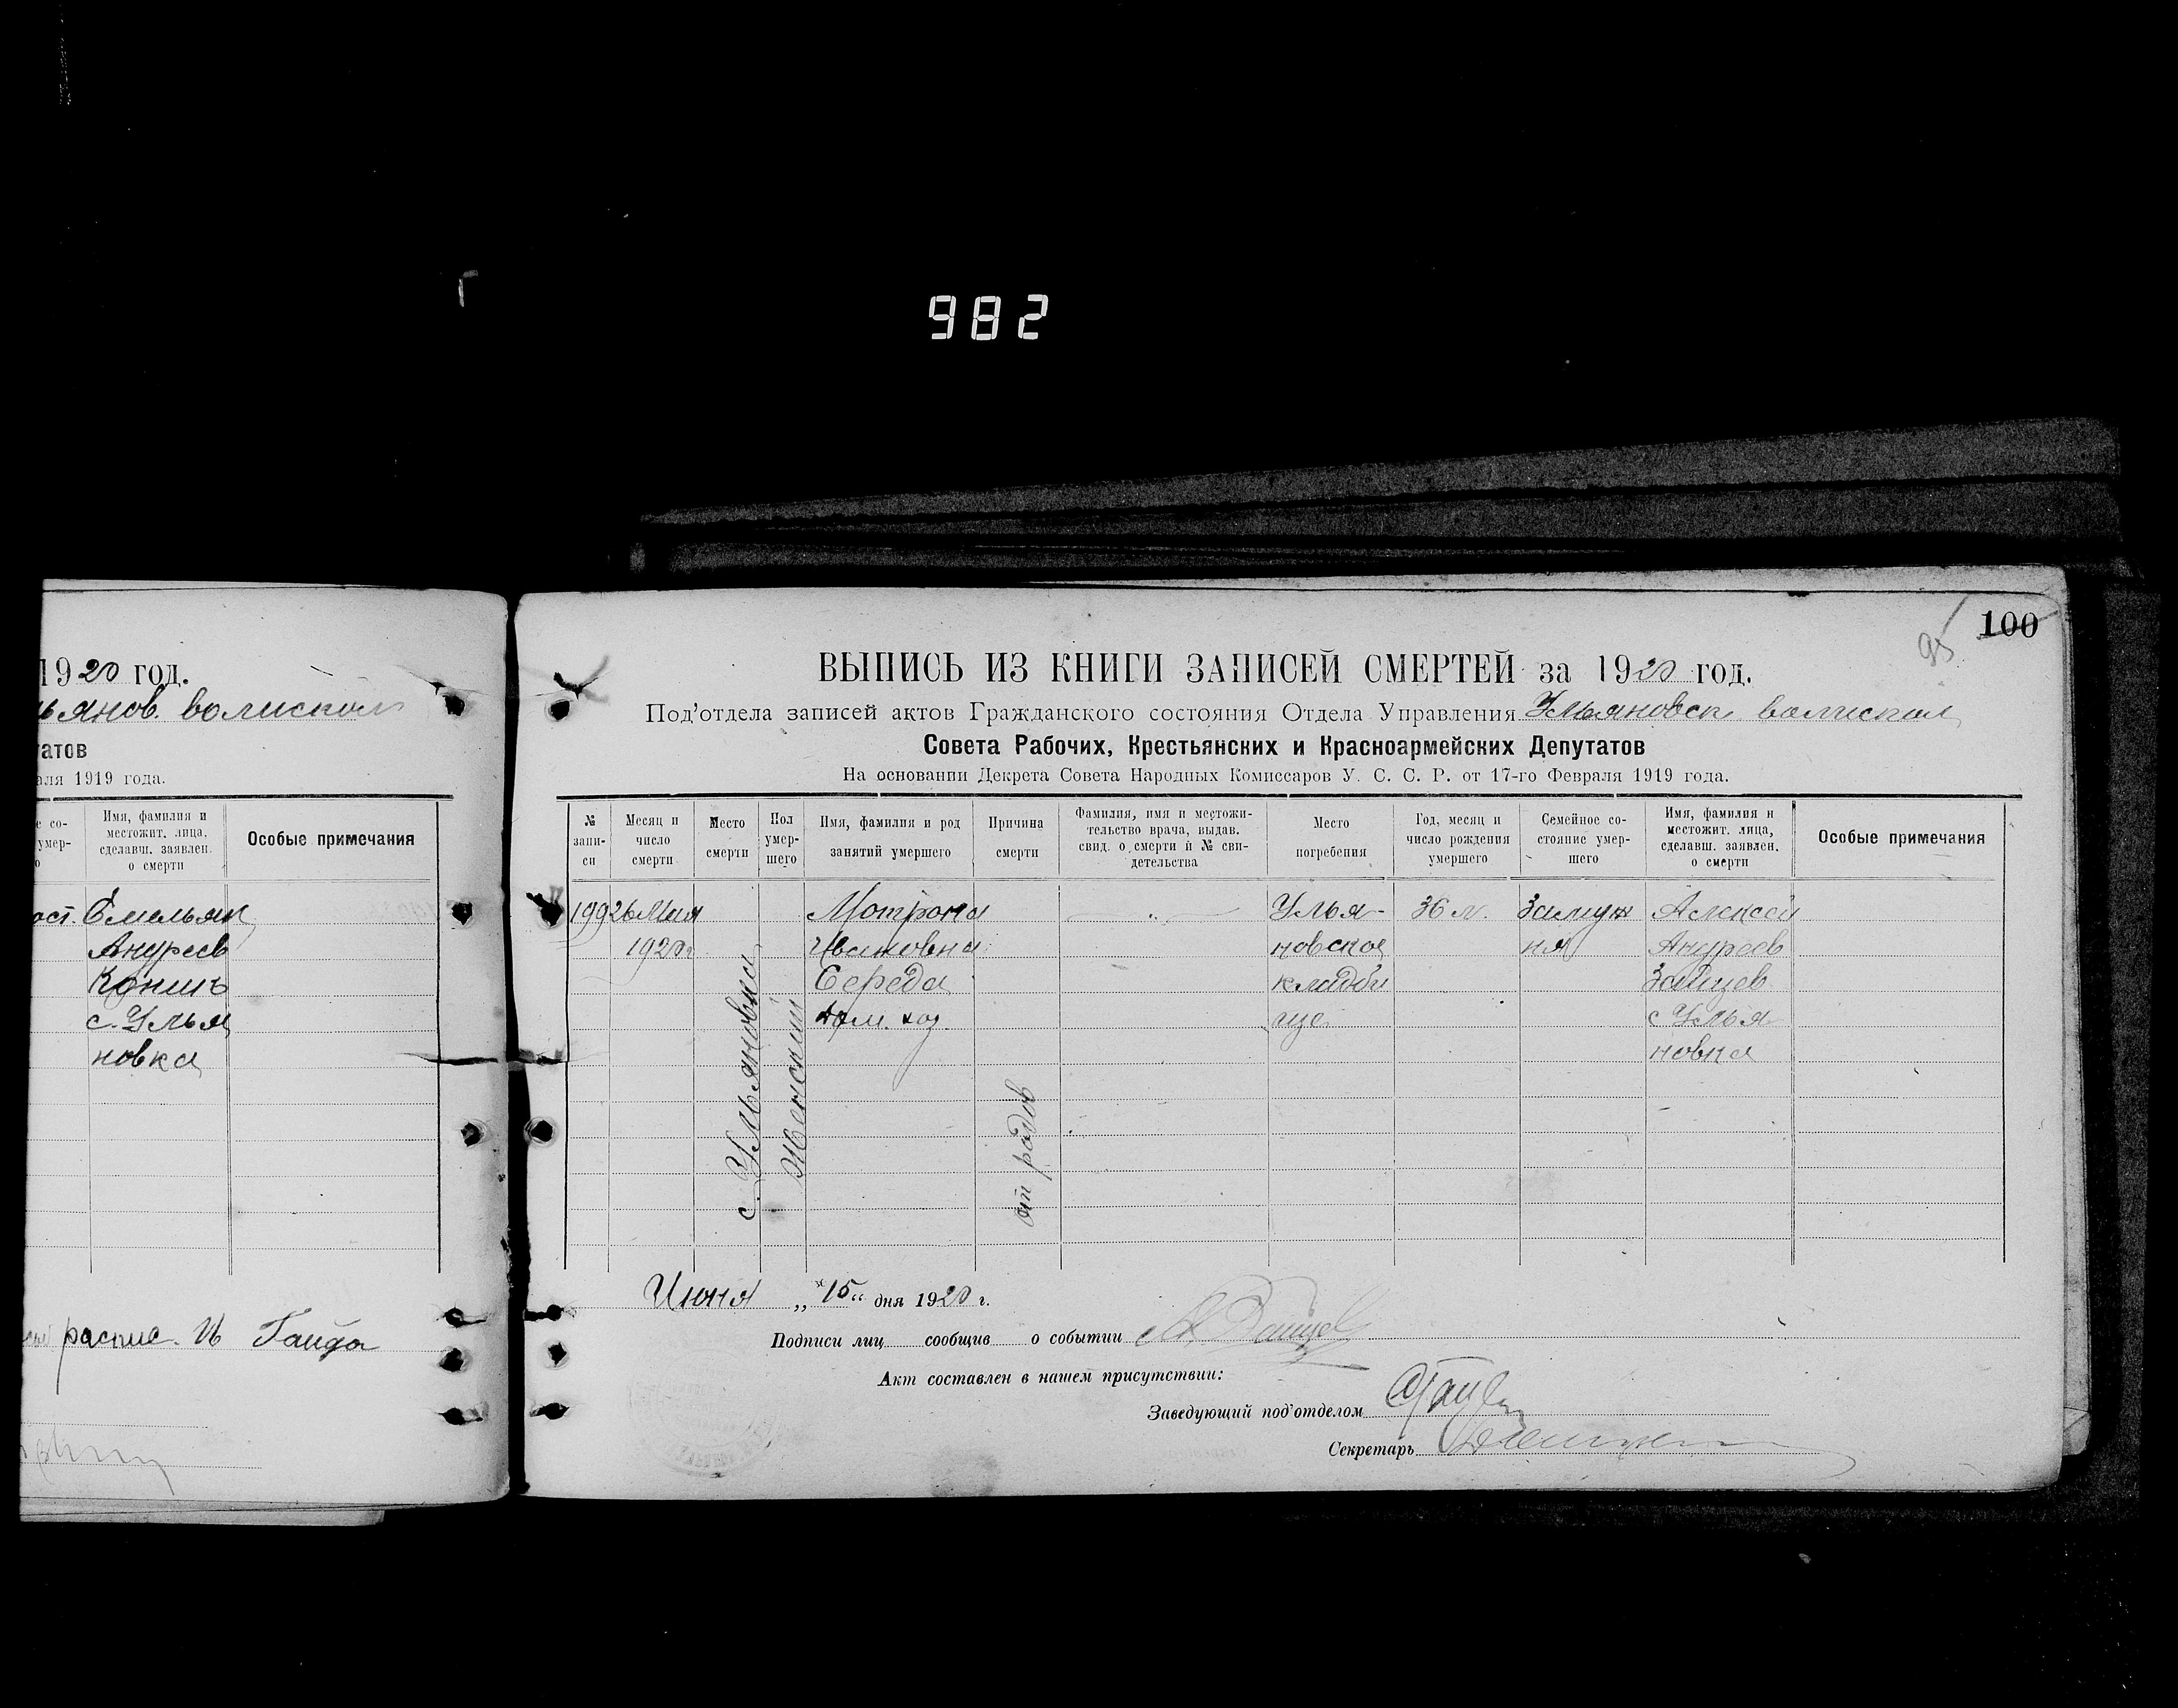 982
1920 год.
ьянов. волиспол
татов
аля 1919 года.
е со-
умер-
о
Имя, фамилия и
местожит. лица,
сделавш. заявлен.
о смерти
Особые примечания
Емельян
Андреев
с. Улья
новка
распис. И Гайда
100
95
ВЫПИСЬ ИЗ КНИГИ ЗАПИСЕЙ СМЕРТЕЙ за 1920 год.
Под'отдела записей актов Гражданского состояния Отдела Управления Ульяновск волиспол
Совета Рабочих, Крестьянских и Красноармейских Депутатов
На основании Декрета Совета Народных Комиссаров У. С. С. Р. от 17-го Февраля 1919 года.
№
запи-
си
Месяц и
число
смерти
Место
смерти
Пол
умер-
шего
Имя, фамилия и род
занятий умершего
Причина
смерти
Фамилия, имя и местожи-
тельство врача, выдав.
свид. о смерти и № сви-
детельства
Место
погребения
Год, месяц и
число рождения
умершего
Семейное со-
стояние умер-
шего
Имя, фамилия и
местожит. лица,
сделавш. заявлен.
о смерти
Особые примечания
199
26 Мая
1920 г
с. Ульяновка
Женский
Мотрона
Ивановна
Середа
дом. хоз.
от родов
"
Улья-
новское
кладби
ще
36 л.
Замуж
няя
Алексей
Андреев
Зайцев
с Улья
новка
Июня „15" дня 1920 г.
Подписи лиц сообщив о событии А Зайцев
Акт составлен в нашем присутствии:
Заведующий под'отделом
Секретарь